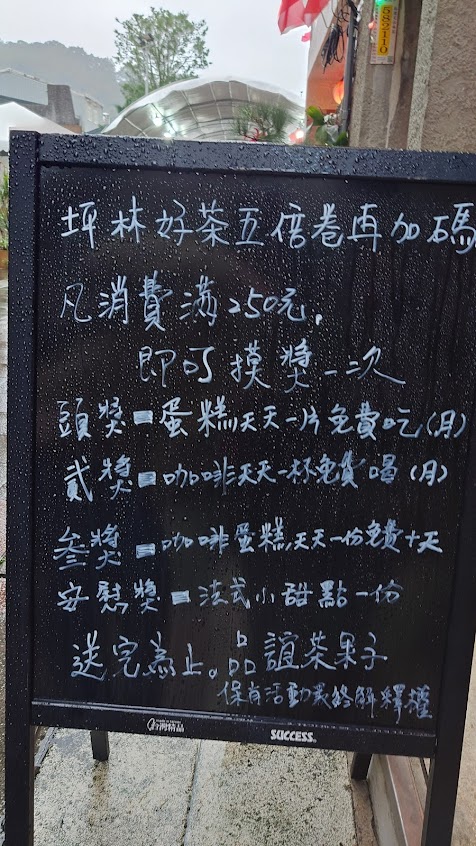 5882110
坪林好茶五倍卷再加碼
凡消費满250元,
即可摸獎一次
頭獎=蛋糕,天天一片免費吃(月)
貳獎=咖啡天天一杯免費喝(月)
叁獎=咖啡蛋糕,天天一份免費十天
安慰獎=法式小甜點一份
送完為止。品誼茶果子
保有活動最終解釋權
台灣精品
SUCCESS